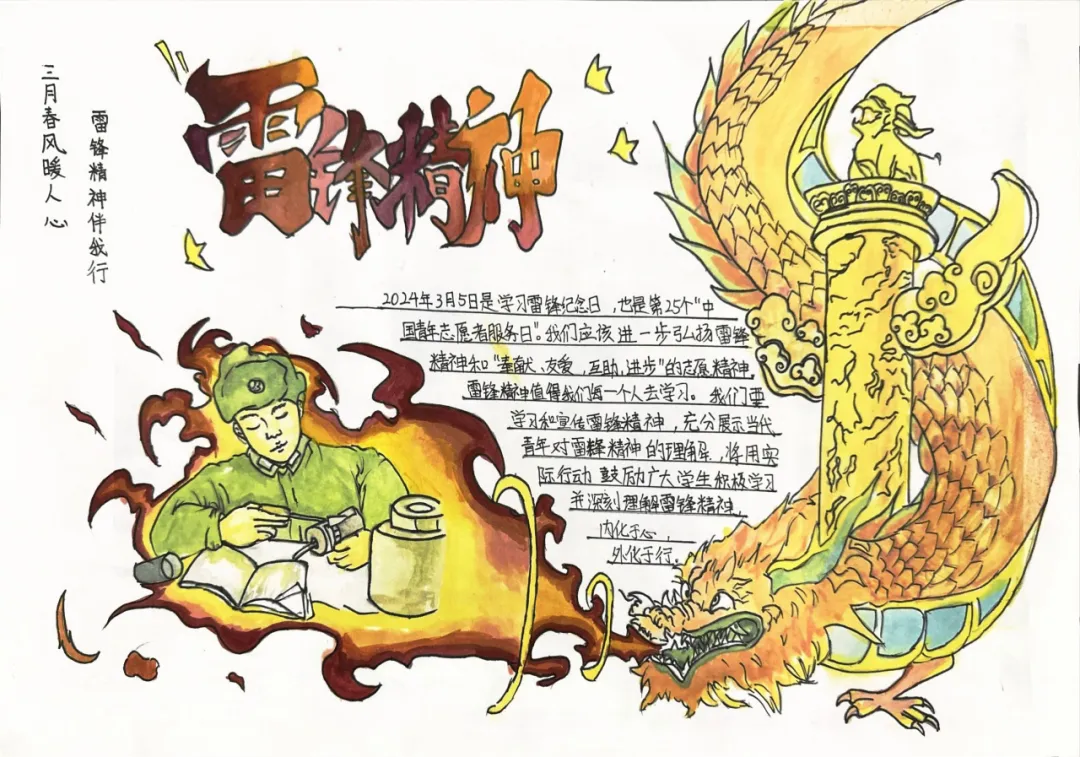 三月春风暖人心
雷锋精神伴我行
雷锋精神
2024年3月5日是学习雷锋纪念日，也是第25个"中
国青年志愿者服务日"。我们应该进一步弘扬雷锋
精神和"奉献、友爱，互助，进步"的志愿精神，
雷锋精神值得我们每一个人去学习。我们要
学习和宣传雷锋精神，充分展示当代
青年对雷锋精神的理解，将用实
际行动鼓励广大学生积极学习
并深刻理解雷锋精神，
内化于心，
外化于行。